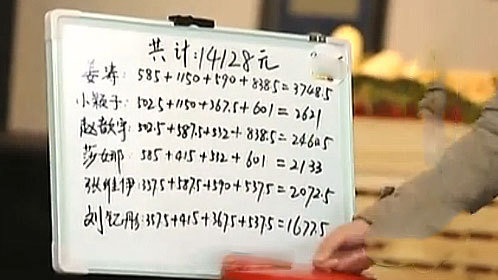 共计:14128元
姜涛: 585+1150+590+838.5=3748.5
502.5+1150+367.5+601=2621
502.5+587.5+532+838.5=2460.5
莎娜: 585+415+532+601=2133
张维伊:357.5+587.5+590+537.5=2072.5
刘忆彤:357.5+415+367.5+537.5=1677.5